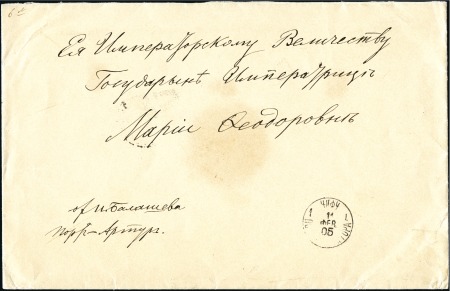 Ея Императорскому Величеству
Государынѣ Императрицѣ
Маріи Ѳеодоровнѣ
от И. Балашева
Порт-Артур.
ЧИФУ
1
11
ФЕВ
05